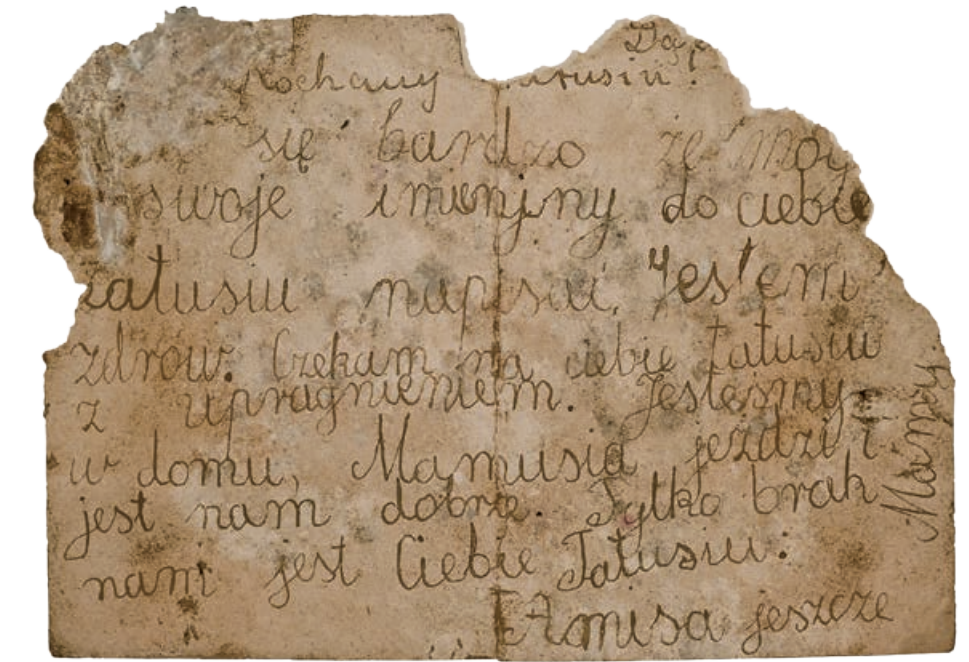 Kochany
się bardzo że
swoje imieniny do ciebie
Tatusiu napisać. Jestem
zdrów. Czekam na ciebie tatusiu
z upragnieniem. Jesteśmy
w domu, Mamusia jeździ i
jest nam dobrze. Tylko brak
nam jest Ciebie Tatusiu.
jeszcze
Mamy